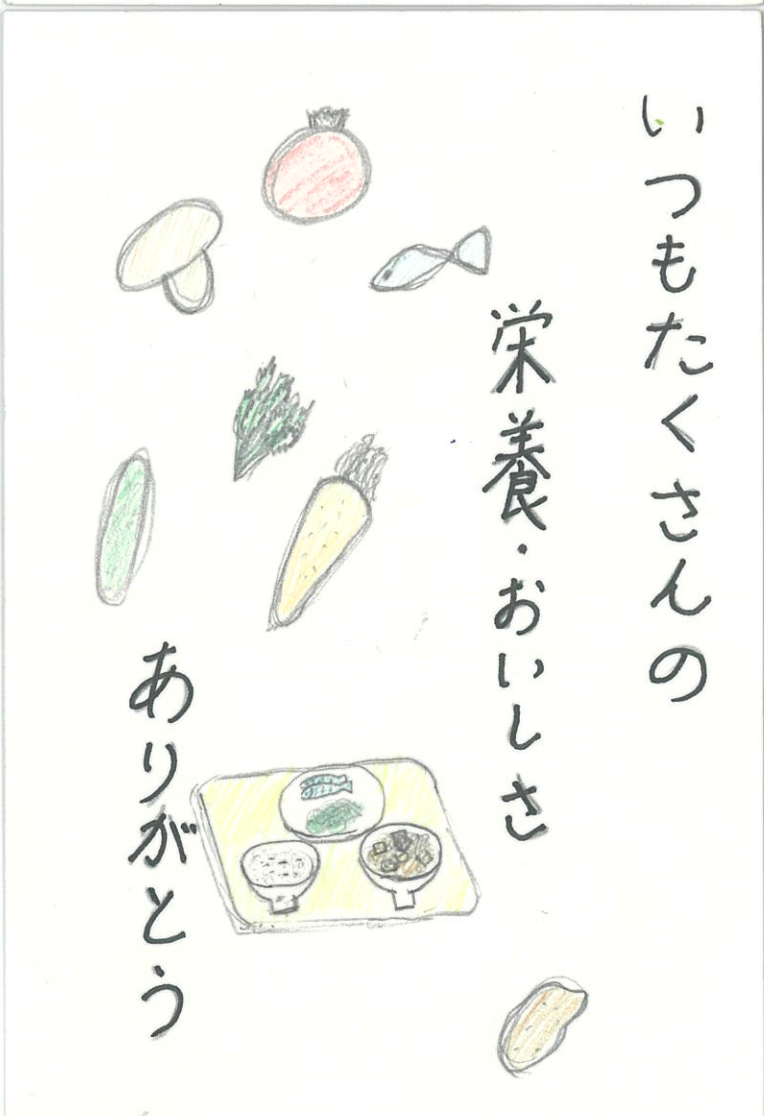 いつもたくさんの
栄養・おいしさ
ありがとう